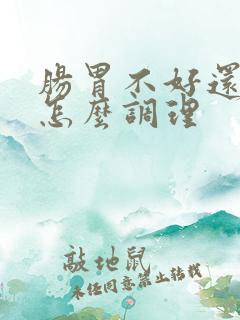 腸胃不好還
怎麼調理
敲地鼠
未經同意禁止轉載